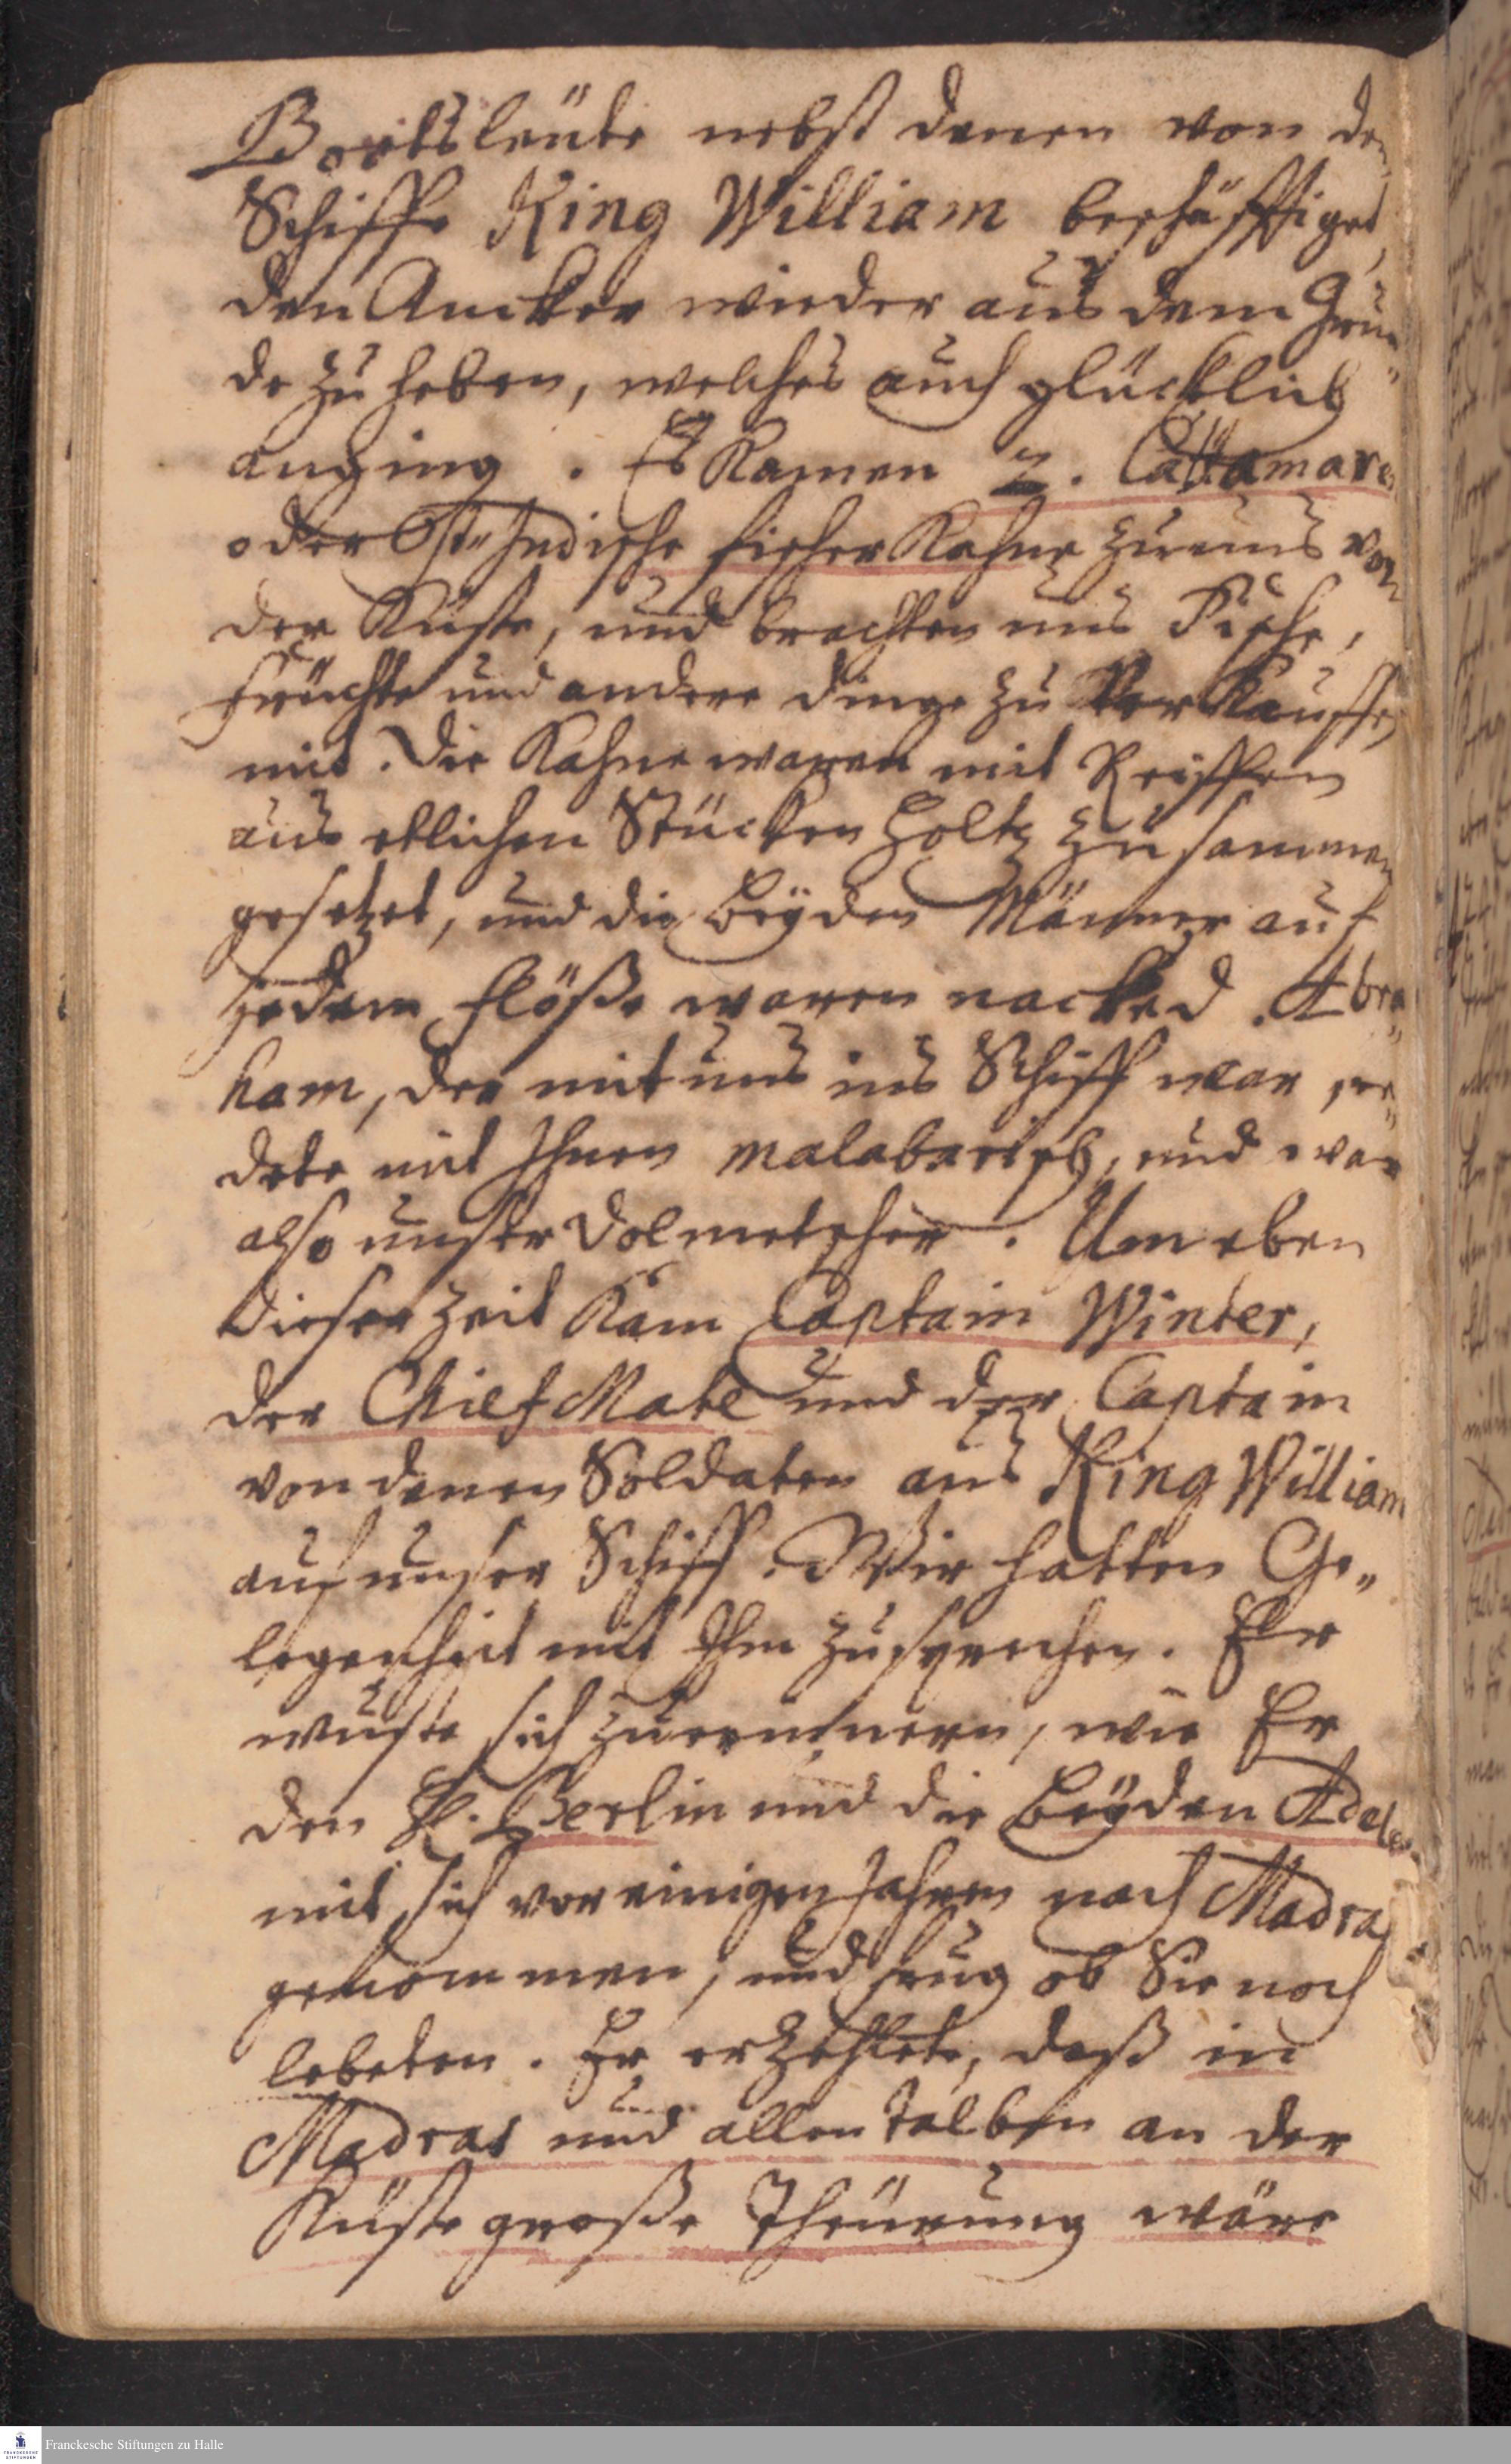 Bootsleüte nebst denen von de
Schiffe King William beschäfftiget,
den Ancker wieder aus dem Grun„
de zu heben, welches auch glücklich
anging. Es kamen 2. Cattamare
oder Ost„Indische fischer Kahne zu uns von
der Küste, und brachten uns Fische,
früchte und andere dinge zu Verkauffen
mit. Die Kahne waren mit Reiffen
aus etlichen Stücken Holtz zusammen
gesetzet, und die beÿden Männer auf
jedem flöße waren nacked. Abra„
ham, der mit uns ins Schiff war, re„
dete mit Ihnen malabarisch, und war
also unser Dolmetscher. Um eben
dieser Zeit kam Captain Winter,
der Chief Mate und der Captain
von denen Soldaten aus King William
auf unser Schiff. Wir hatten Ge„
legenheit mit Ihm zu sprechen. Er
wuste sich zu erinnern, wie Er
den H. Berlin und die beÿden Adel
mit sich vor einigen Jahren nach Madras
genommen, und frug ob Sie noch
lebeten. Er erzehlete, daß in
Madras und allenthalben an der
Küste große Theürung wäre
Franckesche Stiftungen zu Halle